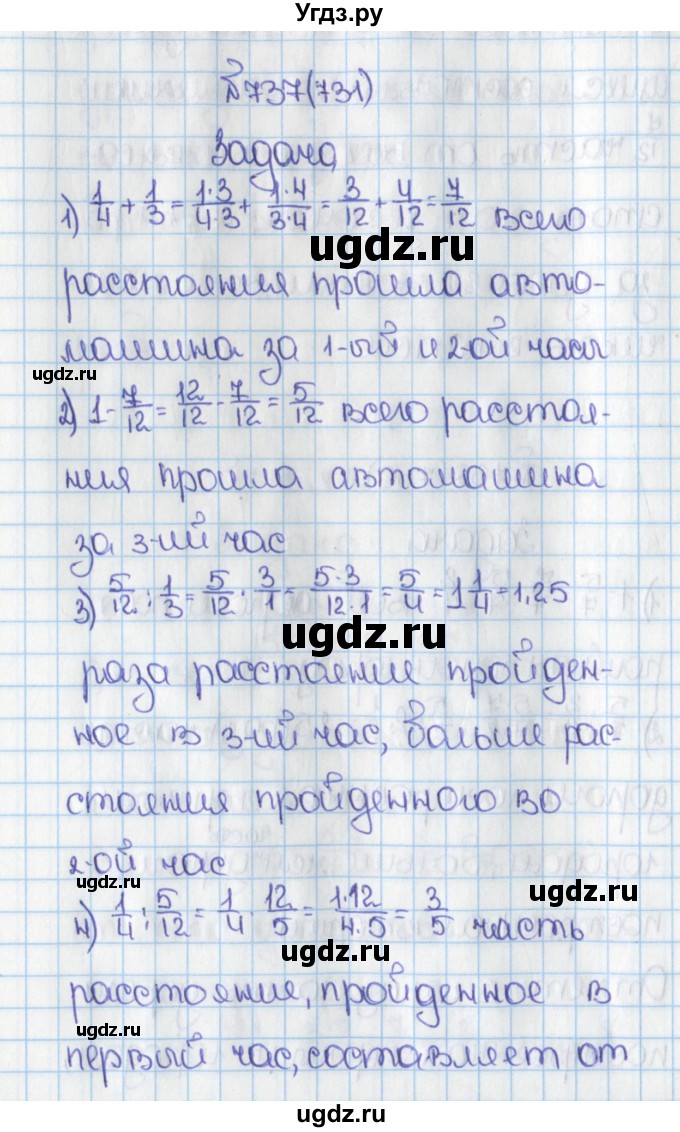 Угдз.ру
№737(731)
Задача
1) 1/4 + 1/3 = 1·3/4·3 + 1·4/3·4 = 3/12 + 4/12 = 7/12 всего
ugdz.ru
расстояния прошла авто-
машина за 1-ый и 2-ой часы
ugdz.ru
2) 1 - 7/12 = 12/12 - 7/12 = 5/12 всего расстоя-
ния прошла автомашина
за 3-ий час
3) 5/12 : 1/3 = 5/12 · 3/1 = 5·3/12·1 = 5/4 = 1 1/4 = 1,25
ugdz.ru
раза расстояние пройден-
ное в 3-ий час, больше рас-
стояния пройденного во
2-ой час
ugdz.ru
ugdz.ru
4) 1/4 : 5/12 = 1/4 · 12/5 = 1·12/4·5 = 3/5 часть
ugdz.ru
расстояние, пройденное в
ugdz.ru
первый час, составляет от
ugdz.ru